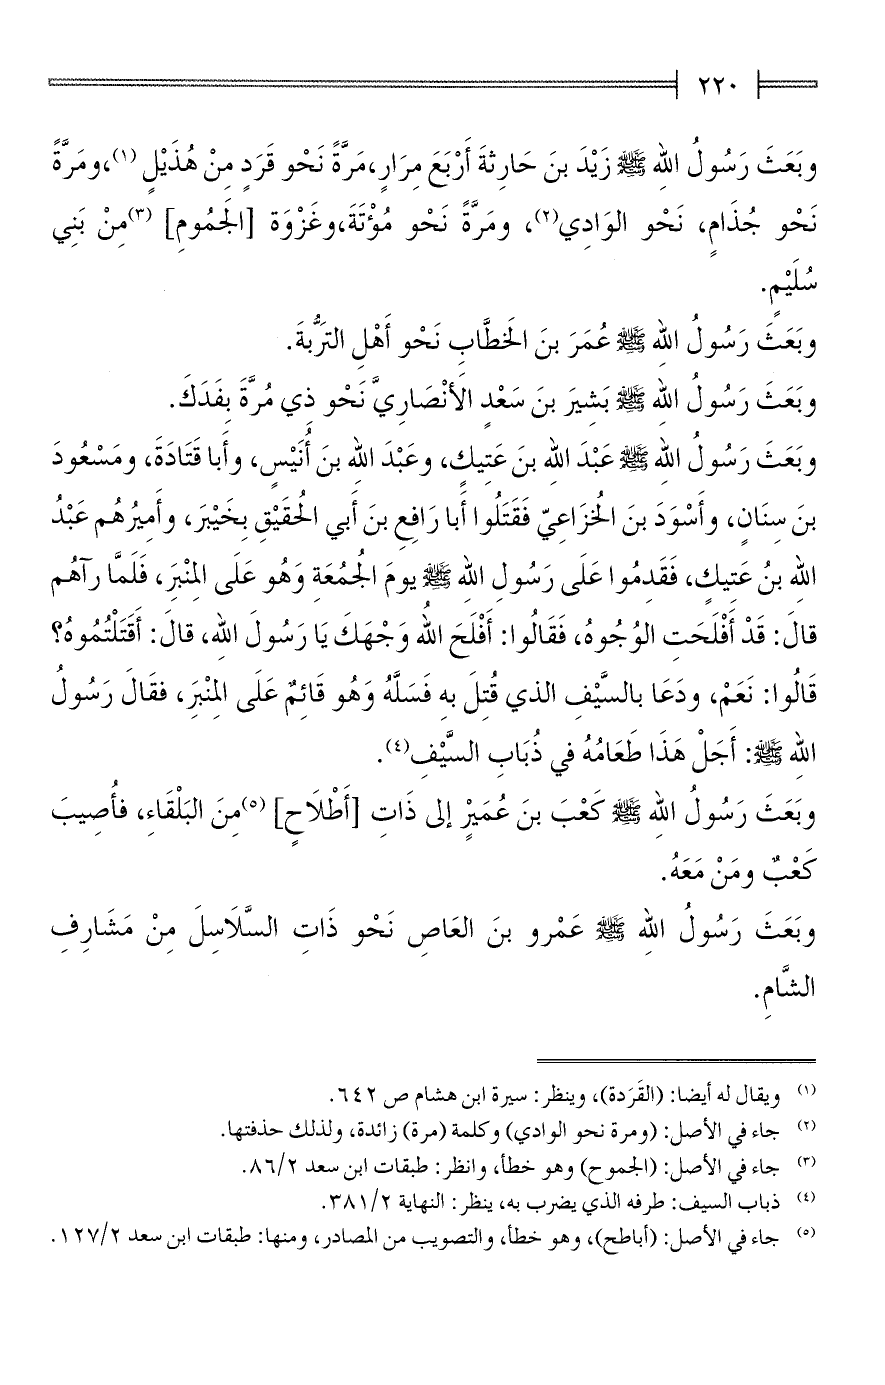 ٢٢٠
وبَعَثَ رَسُولُ اللهِ ﷺ زَيْدَ بنَ حَارِثةَ أَرْبَعَ مِرَارٍ،مَرَّةً نَحْو قَرَدٍ مِنْ هُذَيْلٍ (١)،ومَرَّةً
نَحْو جُذَامٍ، نَحْو الوَادِي(٢)، ومَرَّةً نَحْو مُؤْتَةَ،وغَزْوَة [الجَمُومِ] (٣)مِنْ بَنِي
سُلَيْمٍ.
وبَعَثَ رَسُولُ اللهِ ﷺ عُمَرَ بنَ الخَطَّابِ نَحْو أَهْلِ التَرُّبةَ.
وبَعَثَ رَسُولُ اللهِ ﷺ بَشِيرَ بنَ سَعْدٍ الأَنْصَارِيَّ نَحْو ذِي مُرَّةَ بِفَدَكَ.
وبَعَثَ رَسُولُ اللهِ ﷺ عَبْدَ اللهِ بنَ عَتِيكٍ، وعَبْدَ اللهِ بنَ أُنَيْسٍ، وأَبا قَتَادَةَ، ومَسْعُودَ
بنَ سِنَانٍ، وأَسْوَدَ بنَ الخُزَاعِيّ فَقَتَلُوا أَبا رَافِعِ بنَ أَبي الحُقَيْقِ بِخَيْبرَ، وأَمِيرُهُم عَبْدُ
اللهِ بنُ عَتِيكٍ، فَقَدِمُوا عَلَى رَسُولِ اللهِ ﷺ يومَ الجُمُعَةِ وَهُو عَلَى المِنْبَرِ، فَلَمَّا رآهُم
قالَ: قَدْ أَفْلَحَتِ الوُجُوهُ، فَقَالُوا: أَفْلَحَ اللهُ وَجْهَكَ يَا رَسُولَ اللهِ، قالَ: أَقَتَلْتُمُوهُ؟
قَالُوا: نَعَمْ، ودَعَا بالسَّيْفِ الذي قُتِلَ بهِ فَسَلَّهُ وَهُو قَائِمٌ عَلَى المِنْبَرِ، فقَالَ رَسُولُ
اللهِ ﷺ: أَجَلْ هَذَا طَعَامُهُ في ذُبَابِ السَّيْفِ(٤).
وبَعَثَ رَسُولُ اللهِ ﷺ كَعْبَ بنَ عُمَيرْ إلى ذَاتِ [أَطْلَاحٍ] (٥)مِنَ البَلْقَاءِ، فأُصِيبَ
كَعْبٌ ومَنْ مَعَهُ.
وبَعَثَ رَسُولُ اللهِ ﷺ عَمْرو بنَ العَاصِ نَحْو ذَاتِ السَّلَاسِلَ مِنْ مَشَارِفِ
الشَّامِ.
(١) ويقال له أيضا: (القَرَدة)، وينظر: سيرة ابن هشام ص ٦٤٢.
(٢) جاء في الأصل: (ومرة نحو الوادي) وكلمة (مرة) زائدة، ولذلك حذفتها.
(٣) جاء في الأصل: (الجموح) وهو خطأ، وانظر: طبقات ابن سعد ٨٦/٢.
(٤) ذباب السيف: طرفه الذي يضرب به، ينظر: النهاية ٣٨١/٢.
(٥) جاء في الأصل: (أباطح)، وهو خطأ، والتصويب من المصادر، ومنها: طبقات ابن سعد ١٢٧/٢.